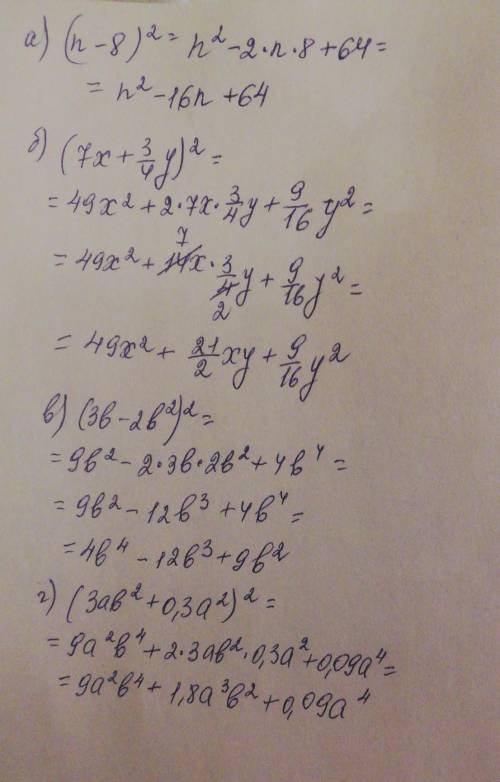 а) (n - 8)² = n² - 2·n·8 + 64 =
= n² - 16n + 64
б) (7x + 3/4 y)² =
= 49x² + 2·7x·3/4 y + 9/16 y² =
7
= 49x² + 14x · 3/4 y + 9/16 y² =
2
= 49x² + 21/2 xy + 9/16 y²
в) (3b - 2b²)² =
= 9b² - 2·3b·2b² + 4b⁴ =
= 9b² - 12b³ + 4b⁴ =
= 4b⁴ - 12b³ + 9b²
г) (3ab² + 0,3a²)² =
= 9a²b⁴ + 2·3ab²·0,3a² + 0,09a⁴ =
= 9a²b⁴ + 1,8a³b² + 0,09a⁴